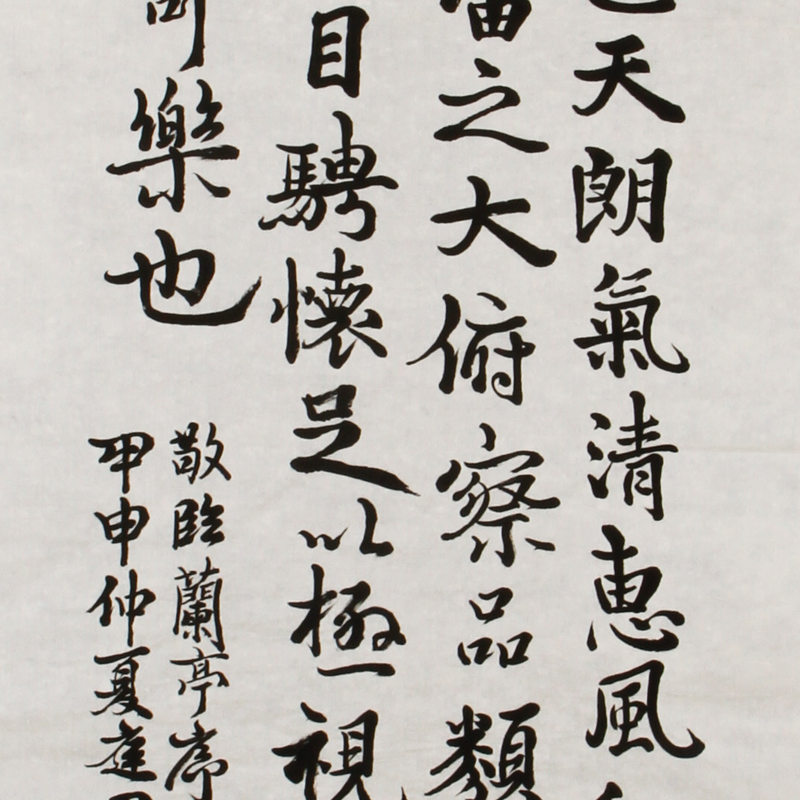 天朗氣清惠風
宙之大俯察品類
目騁懷足以極視
樂也
敬臨蘭亭序
甲申仲夏